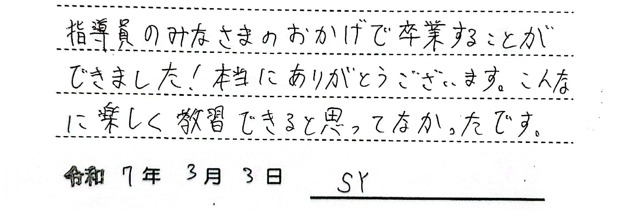 指導員のみなさまのおかげで卒業することが
できました！本当にありがとうございます。こんな
に楽しく教習できると思ってなかったです。
令和 7年 3月 3日 SY